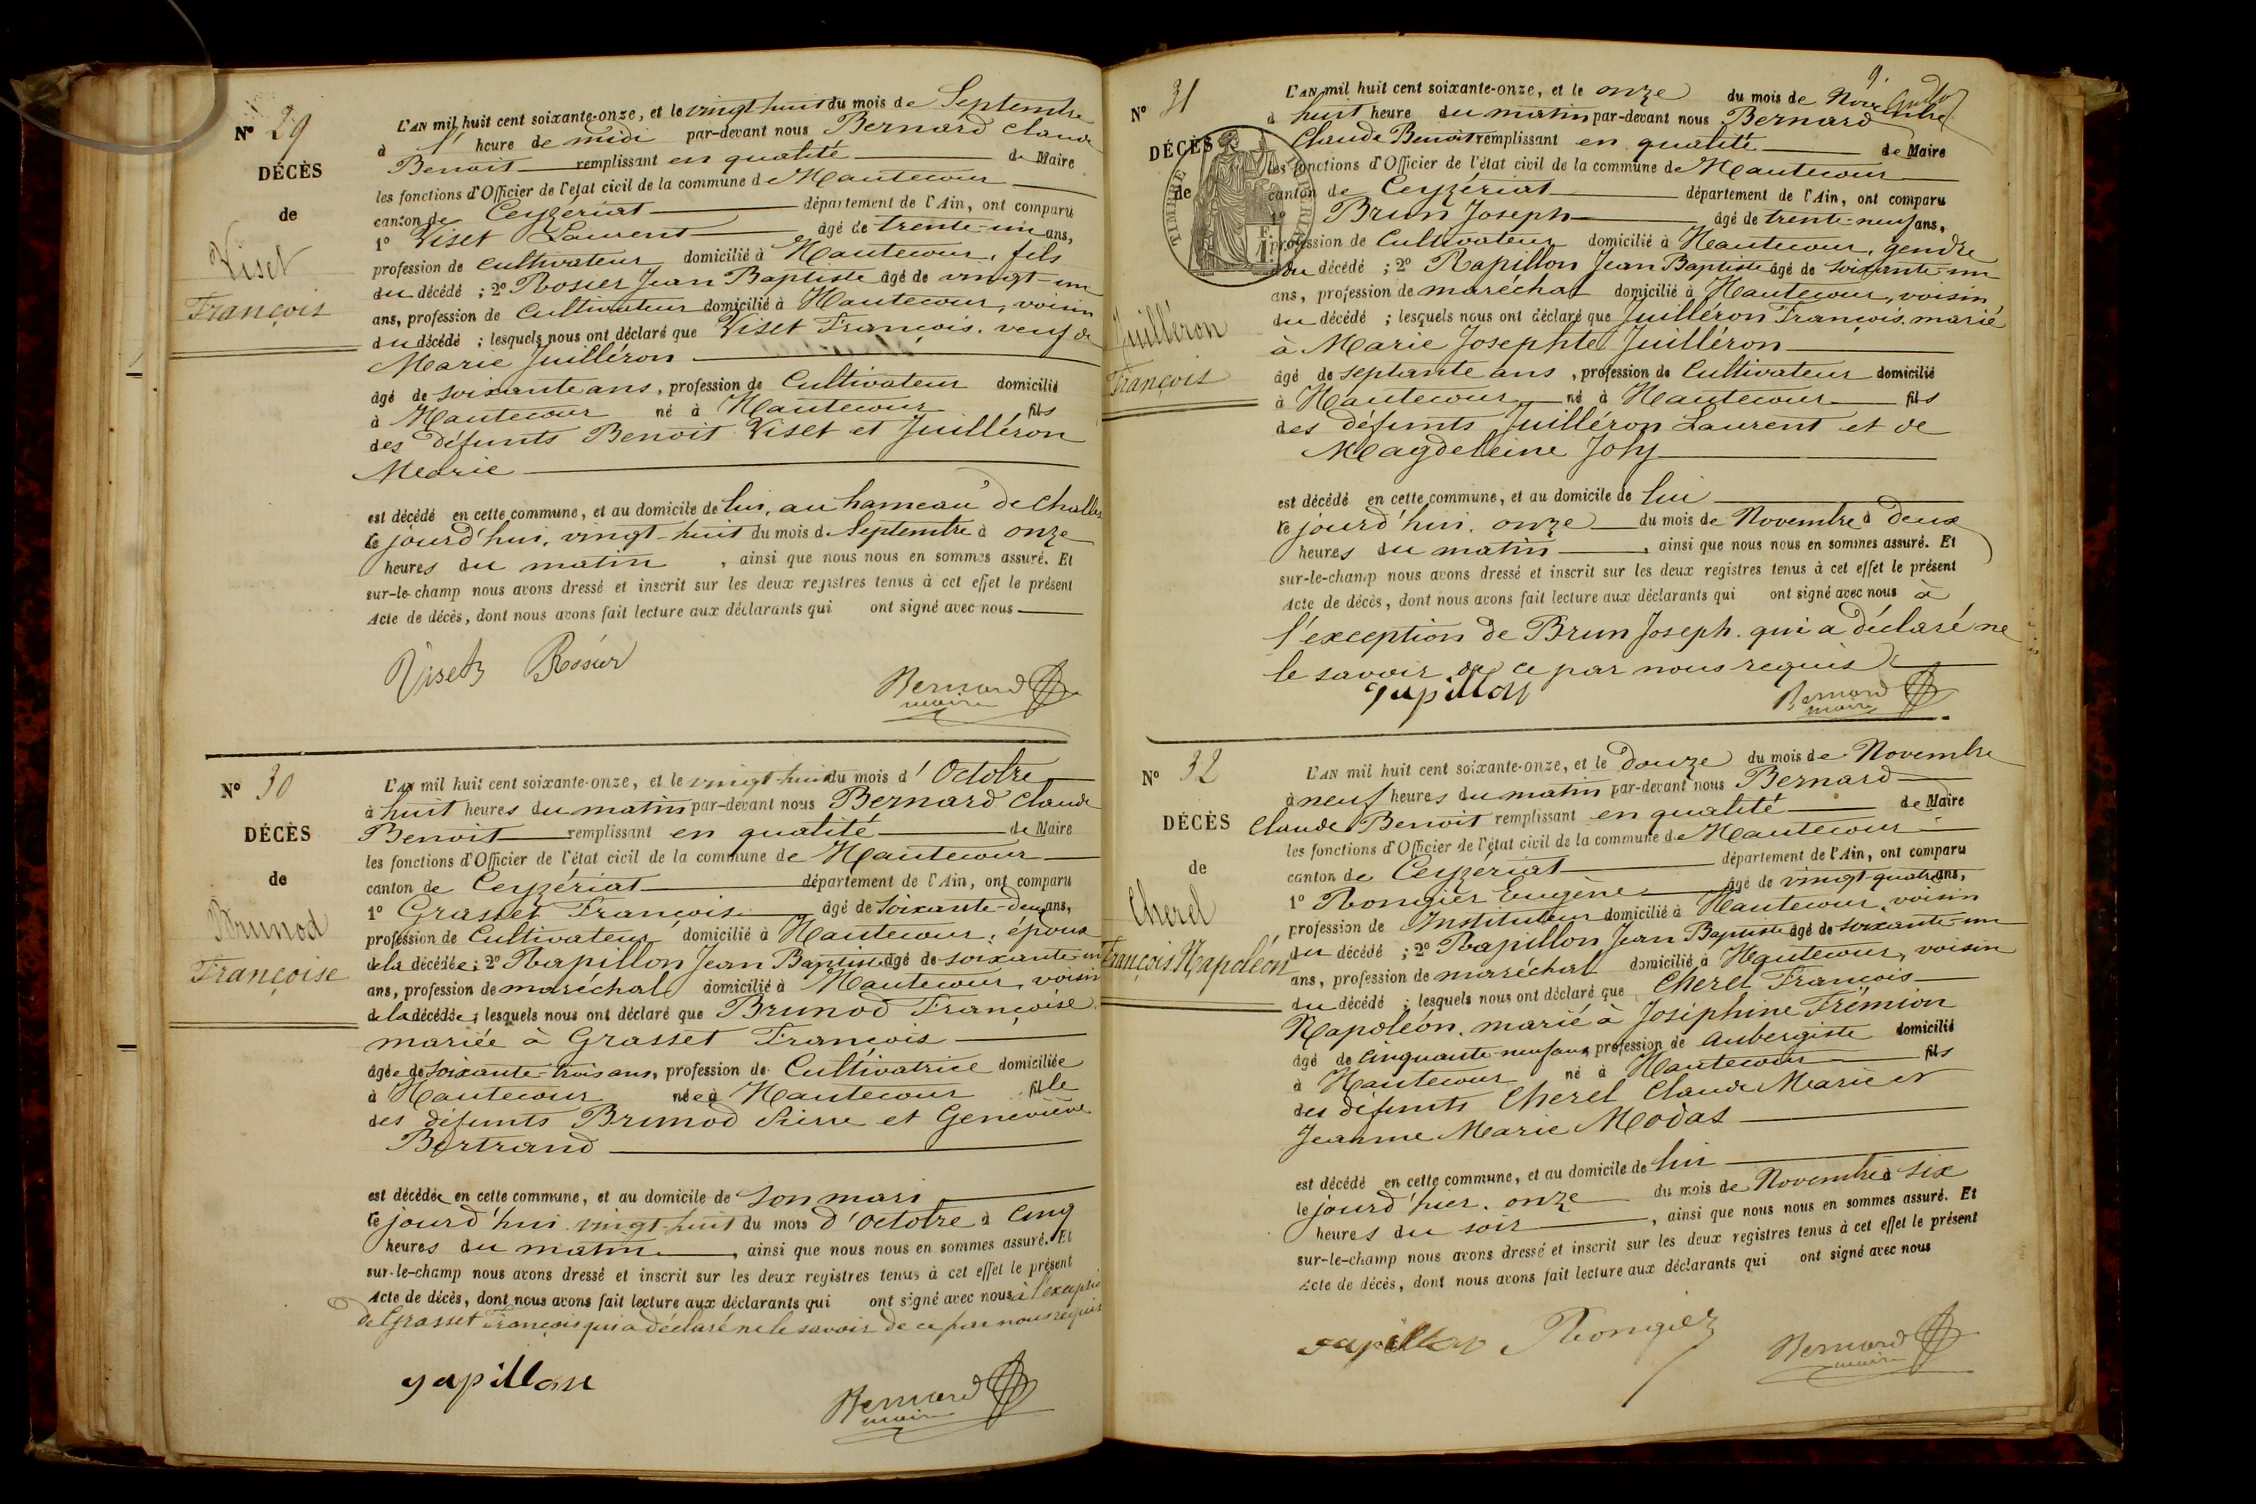 Nº 29
DÉCÈS
de
Viset
François
L'AN mil huit cent soixante-onze, et le vingt-huit du mois de Septembre
à 1 heure de midi par-devant nous Bernard Claude
Benoit remplissant en qualité de Maire
les fonctions d'Officier de l'état civil de la commune de Hautecour
canton de Ceyzériat département de l'Ain, ont comparu
1º Viset Laurent âgé de trente-un ans,
profession de Cultivateur domicilié à Hautecour, fils
du décédé ; 2º Rosier Jean Baptiste âgé de vingt-un
ans, profession de Cultivateur domicilié à Hautecour, voisin
du décédé ; lesquels nous ont déclaré que Viset François, veuf de
Marie Juilléron
âgé de soixante ans, profession de Cultivateur domicilié
à Hautecour né à Hautecour fils
des défunts Benoit Viset et Juilléron
Marie
est décédé en cette commune, et au domicile de lui, au hameau de Challes
le jourd'hui, vingt-huit du mois de Septembre à onze
heures du matin , ainsi que nous nous en sommes assuré. Et
sur-le-champ nous avons dressé et inscrit sur les deux registres tenus à cet effet le présent
Acte de décès, dont nous avons fait lecture aux déclarants qui ont signé avec nous
Viset Rosier
Bernard
maire
Nº 30
DÉCÈS
de
Brunod
Françoise
L'AN mil huit cent soixante-onze, et le vingt-huit du mois d'Octobre
à huit heures du matin par-devant nous Bernard Claude
Benoit remplissant en qualité de Maire
les fonctions d'Officier de l'état civil de la commune de Hautecour
canton de Ceyzériat département de l'Ain, ont comparu
1º Grasset François âgé de soixante-deux ans,
profession de Cultivateur domicilié à Hautecour, époux
de la décédée ; 2º Rapillon Jean Baptiste âgé de soixante-un
ans, profession de maréchal domicilié à Hautecour, voisin
de la décédée ; lesquels nous ont déclaré que Brunod Françoise
mariée à Grasset François
âgée de soixante-trois ans, profession de Cultivatrice domiciliée
à Hautecour née à Hautecour fille
des défunts Brunod Pierre et Geneviève
Bertrand
est décédée en cette commune, et au domicile de son mari
le jourd'hui vingt-huit du mois d'Octobre à cinq
heures du matin , ainsi que nous nous en sommes assuré. Et
sur-le-champ nous avons dressé et inscrit sur les deux registres tenus à cet effet le présent
Acte de décès, dont nous avons fait lecture aux déclarants qui ont signé avec nous à l'exception
de Grasset François qui a déclaré ne le savoir de ce par nous requis
rapillon
Bernard
maire
9.
Nº 31
DÉCÈS
de
Juilléron
François
TIMBRE
L'AN mil huit cent soixante-onze, et le onze du mois de Novembre
à huit heure du matin par-devant nous Bernard
Claude Benoit remplissant en qualité de Maire
les fonctions d'Officier de l'état civil de la commune de Hautecour
canton de Ceyzériat département de l'Ain, ont comparu
1º Brun Joseph âgé de trente-neuf ans,
profession de Cultivateur domicilié à Hautecour, gendre
du décédé ; 2º Rapillon Jean Baptiste âgé de soixante-un
ans, profession de maréchal domicilié à Hautecour, voisin
du décédé ; lesquels nous ont déclaré que Juilléron François, marié
à Marie Josephte Juilléron
âgé de septante ans , profession de Cultivateur domicilié
à Hautecour né à Hautecour fils
des défunts Juilléron Laurent et de
Magdeleine Joly
est décédé en cette commune, et au domicile de lui
le jourd'hui, onze du mois de Novembre à deux
heures du matin , ainsi que nous nous en sommes assuré. Et
sur-le-champ nous avons dressé et inscrit sur les deux registres tenus à cet effet le présent
Acte de décès, dont nous avons fait lecture aux déclarants qui ont signé avec nous à
l'exception de Brun Joseph qui a déclaré ne
le savoir de ce par nous requis
rapillon
Bernard
maire
Nº 32
DÉCÈS
de
Cherel
François Napoléon
L'AN mil huit cent soixante-onze, et le douze du mois de Novembre
à neuf heures du matin par-devant nous Bernard
Claude Benoit remplissant en qualité de Maire
les fonctions d'Officier de l'état civil de la commune de Hautecour
canton de Ceyzériat département de l'Ain, ont comparu
1º Rongier Eugène âgé de vingt-quatre ans,
profession de Instituteur domicilié à Hautecour, voisin
du décédé ; 2º Rapillon Jean Baptiste âgé de soixante-un
ans, profession de maréchal domicilié à Hautecour, voisin
du décédé ; lesquels nous ont déclaré que Cherel François
Napoléon, marié à Joséphine Frémion
âgé de cinquante-neuf ans, profession de Aubergiste domicilié
à Hautecour né à Hautecour fils
des défunts Cherel Claude Marie et
Jeanne Marie Modas
est décédé en cette commune, et au domicile de lui
le jourd'hier, onze du mois de Novembre à six
heures du soir , ainsi que nous nous en sommes assuré. Et
sur-le-champ nous avons dressé et inscrit sur les deux registres tenus à cet effet le présent
Acte de décès, dont nous avons fait lecture aux déclarants qui ont signé avec nous
rapillon Rongier
Bernard
maire